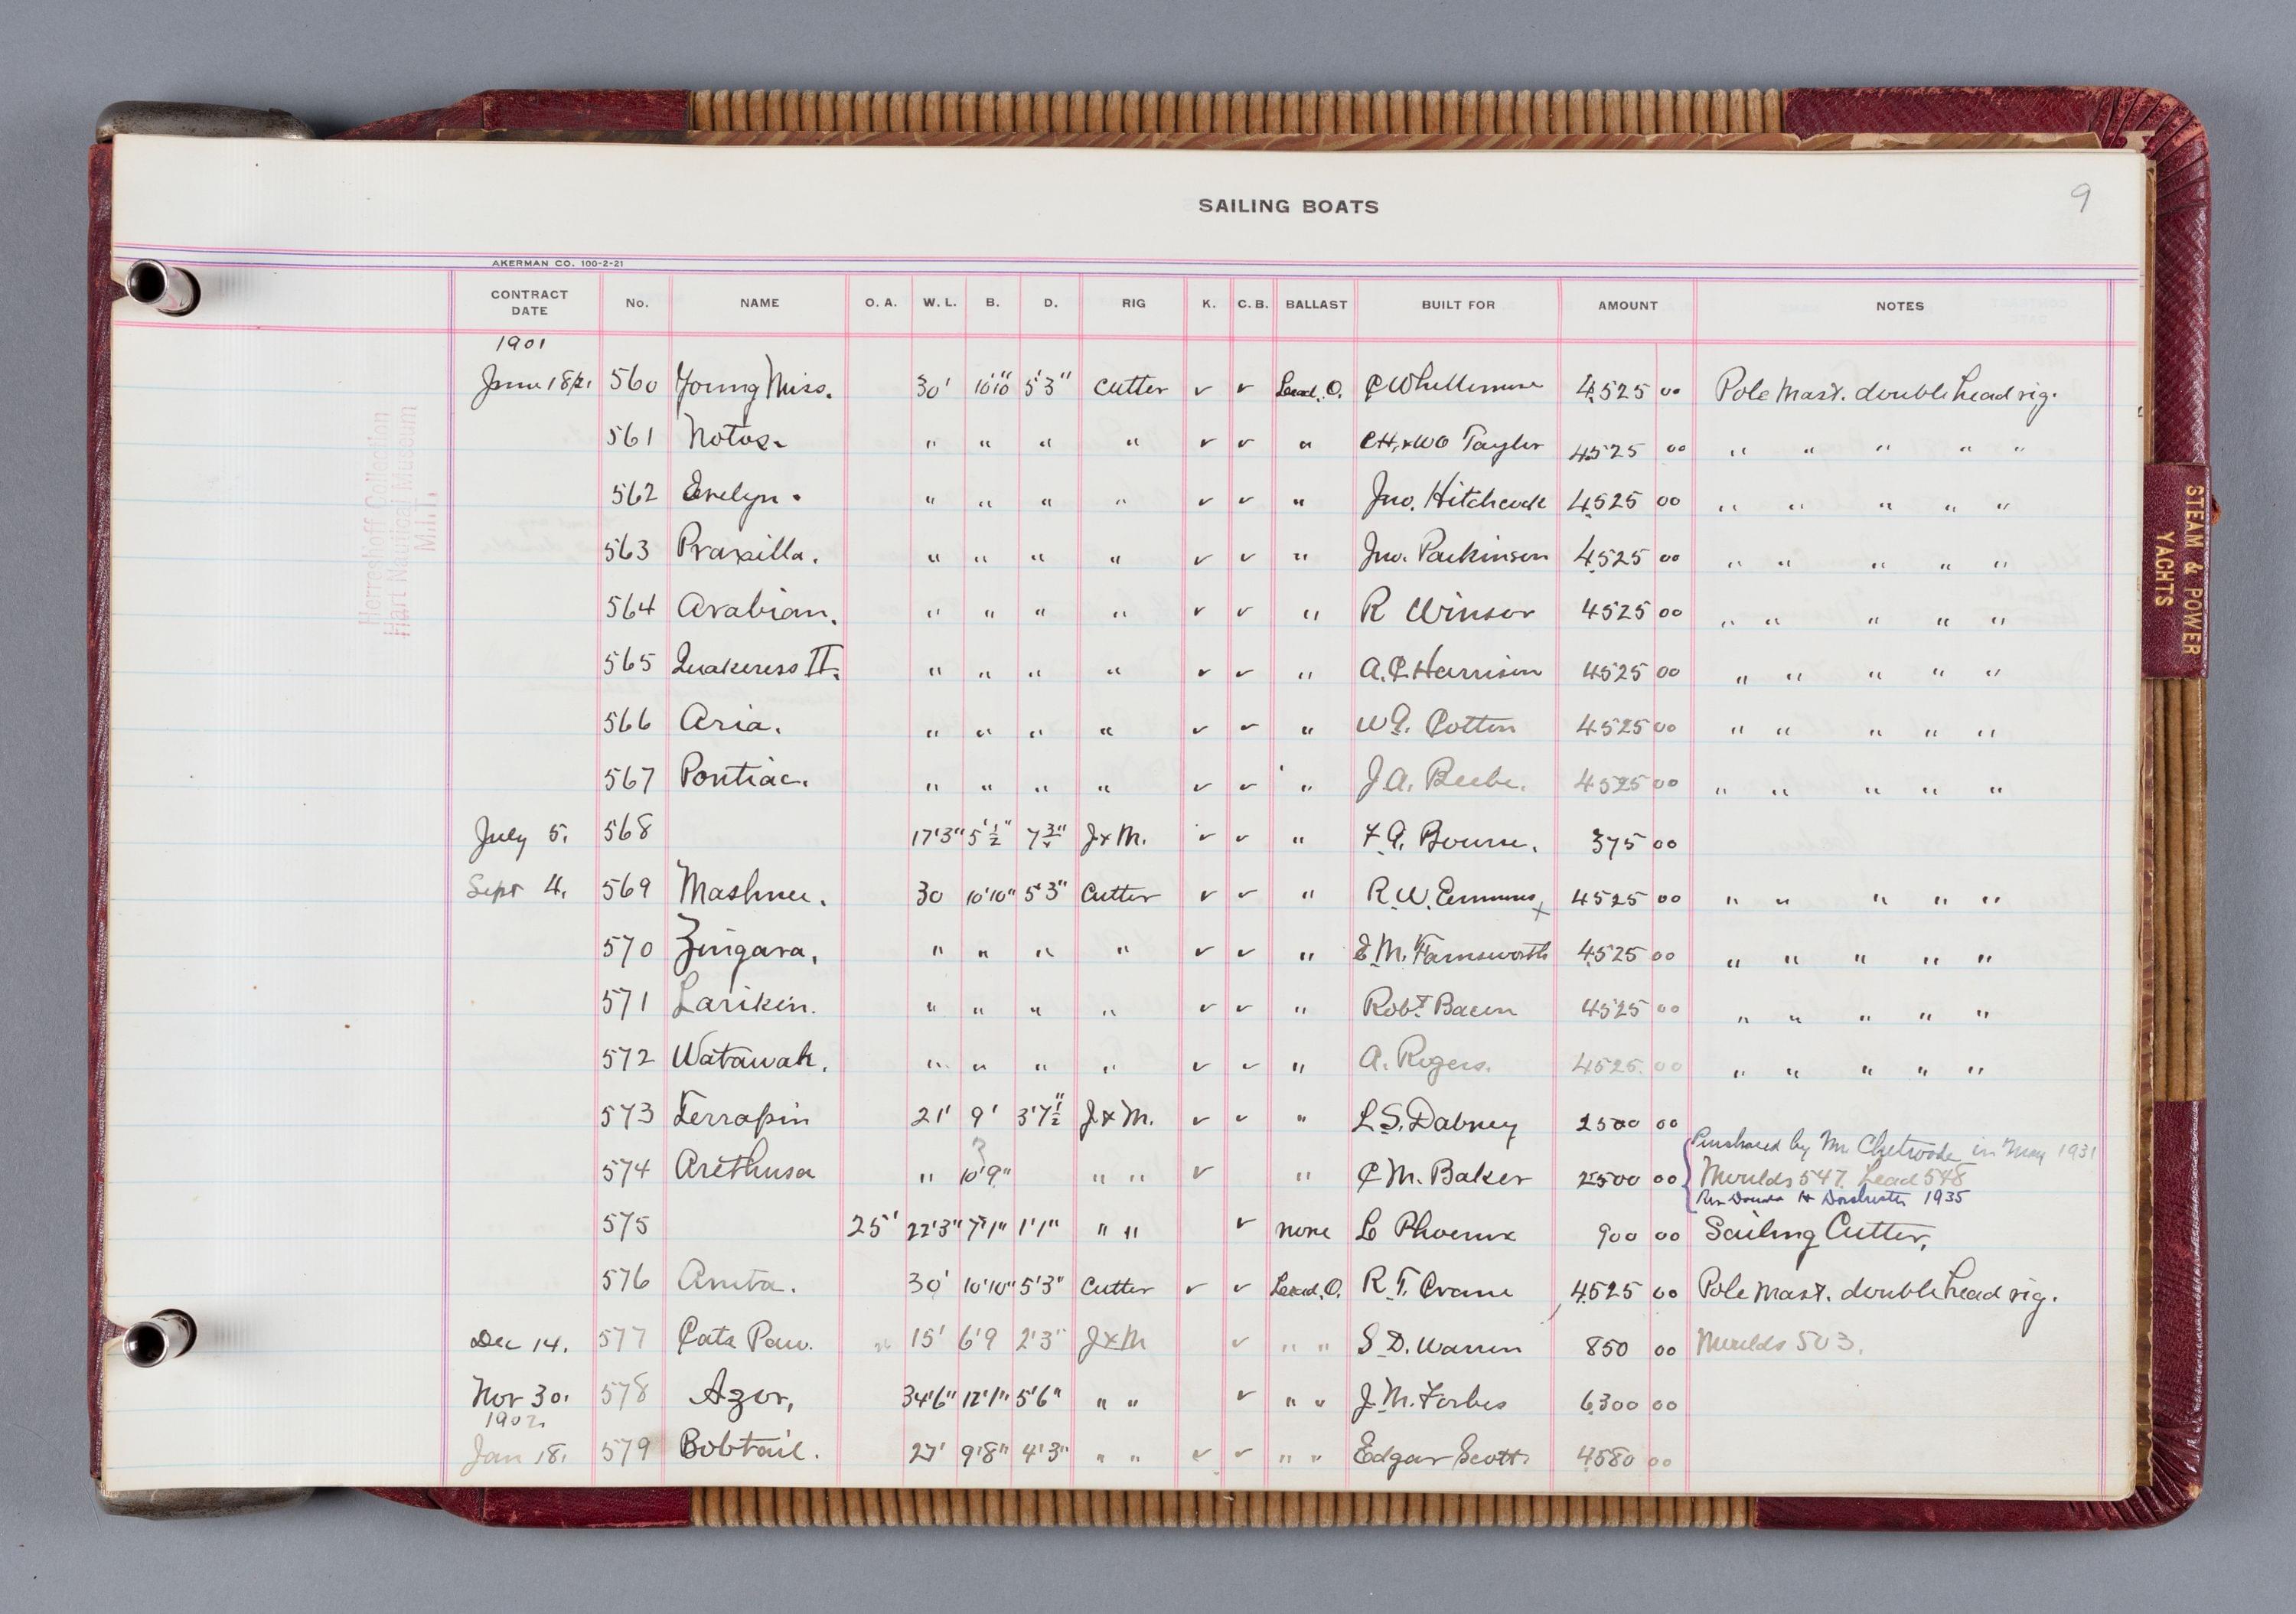 SAILING BOATS
9
AKERMAN CO. 100-2-21
CONTRACT DATE No. NAME O. A. W. L. B. D. RIG K. C. B. BALLAST BUILT FOR AMOUNT NOTES
1901
560 Young Miss. 30' 10'10" 5'3" Cutter v v Lead. O. 4525 00 Pole Mast. double head rig.
561 Notos. " " " " v v " CH. & WO Taylor 4525 00 " " " " "
562 Evelyn. " " " " v v " Jno. Hitchcock 4525 00 " " " " "
563 Praxilla. " " " " v v " Jno. Parkinson 4525 00 " " " " "
564 Arabian. " " " " v v " R Winsor 4525 00 " " " " "
565 Quakeress II. " " " " v v " A. C. Harrison 4525 00 " " " " "
566 Aria. " " " " v v " 4525 00 " " " " "
567 Pontiac. " " " " v v " J. A. Beebe. 4525 00 " " " " "
July 5. 568 17'3" 5'½" J & M. v v " F. G. Bourne. 375 00
Sept 4. 569 Mashnee. 30 10'10" 5'3" Cutter v v " R. W. Emmons x 4525 00 " " " " "
570 Zingara. " " " " v v " E. M. Farnsworth 4525 00 " " " " "
571 Larikin. " " " " v v " Robt. Bacon 4525 00 " " " " "
572 Watawah. " " " " v v " A. Rogers. 4525 00 " " " " "
573 Terrapin 21' 9' 3'7½" J & M. v v " L. S. Dabney 2500 00
Purchased by Mr Chetwode in May 1931
574 Arethusa " 10'9" " " v " C M. Baker 2500 00 Moulds 547. Lead 548
1935
575 25' 22'3" 7'1" 1'1" " " v none L Phoenix 900 00 Sailing Cutter,
576 Anita. 30' 10'10" 5'3" Cutter v v Lead. O. R. T. Crane 4525 00 Pole Mast. double head rig.
Dec 14. 577 Cats Paw. 15' 6'9 2'3" J & M v " " S. D. Warren 850 00 Moulds 503.
Nov 30. 578 Azor, 34'6" 12'1" 5'6" " " v " " J. M. Forbes 6300 00
1902.
Jan 18. 579 Bobtail. 27' 9'8" 4'3" " " v v " " Edgar Scott. 4580 00
Herreshoff Collection
Hart Nautical Museum
M.I.T.
STEAM & POWER
YACHTS